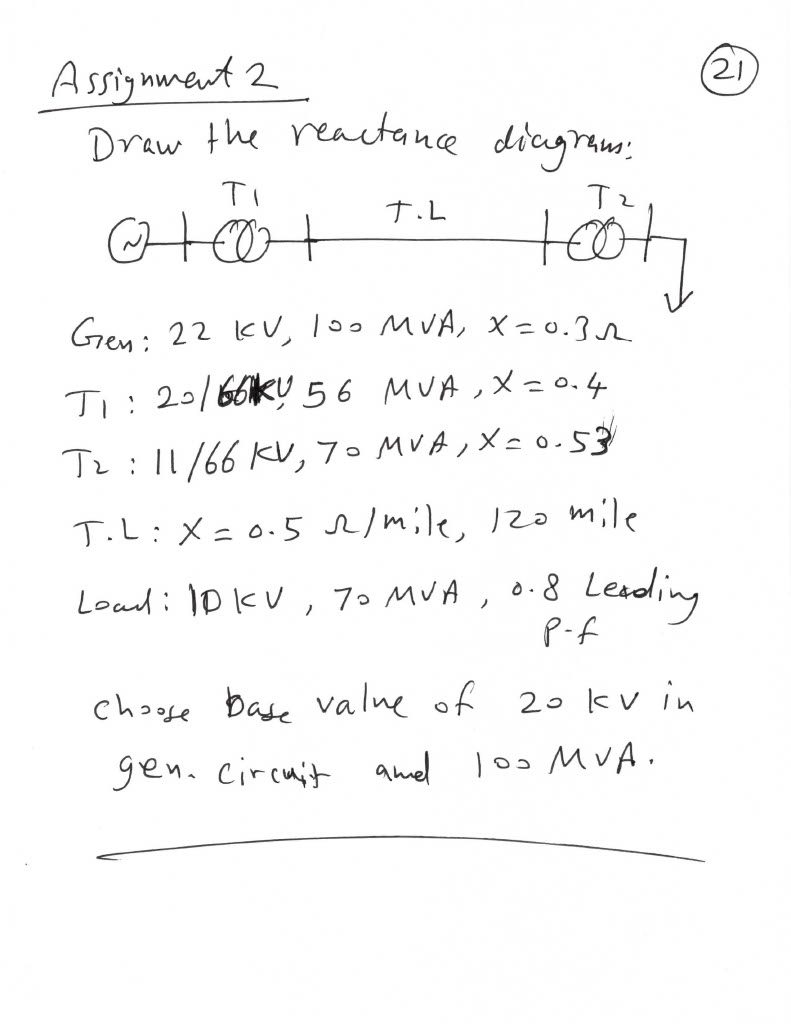 Assignment 2
21
Draw the reactance diagram:
T1 T.L T2
~
Gen: 22 KV, 100 MVA, X=0.3Ω
T1: 20/66KV, 56 MVA, X=0.4
T2: 11/66 KV, 70 MVA, X=0.53
T.L: X=0.5 Ω/mile, 120 mile
Load: 10 KV, 70 MVA, 0.8 Leading
P.f
choose base value of 20 kv in
gen. circuit and 100 MVA.